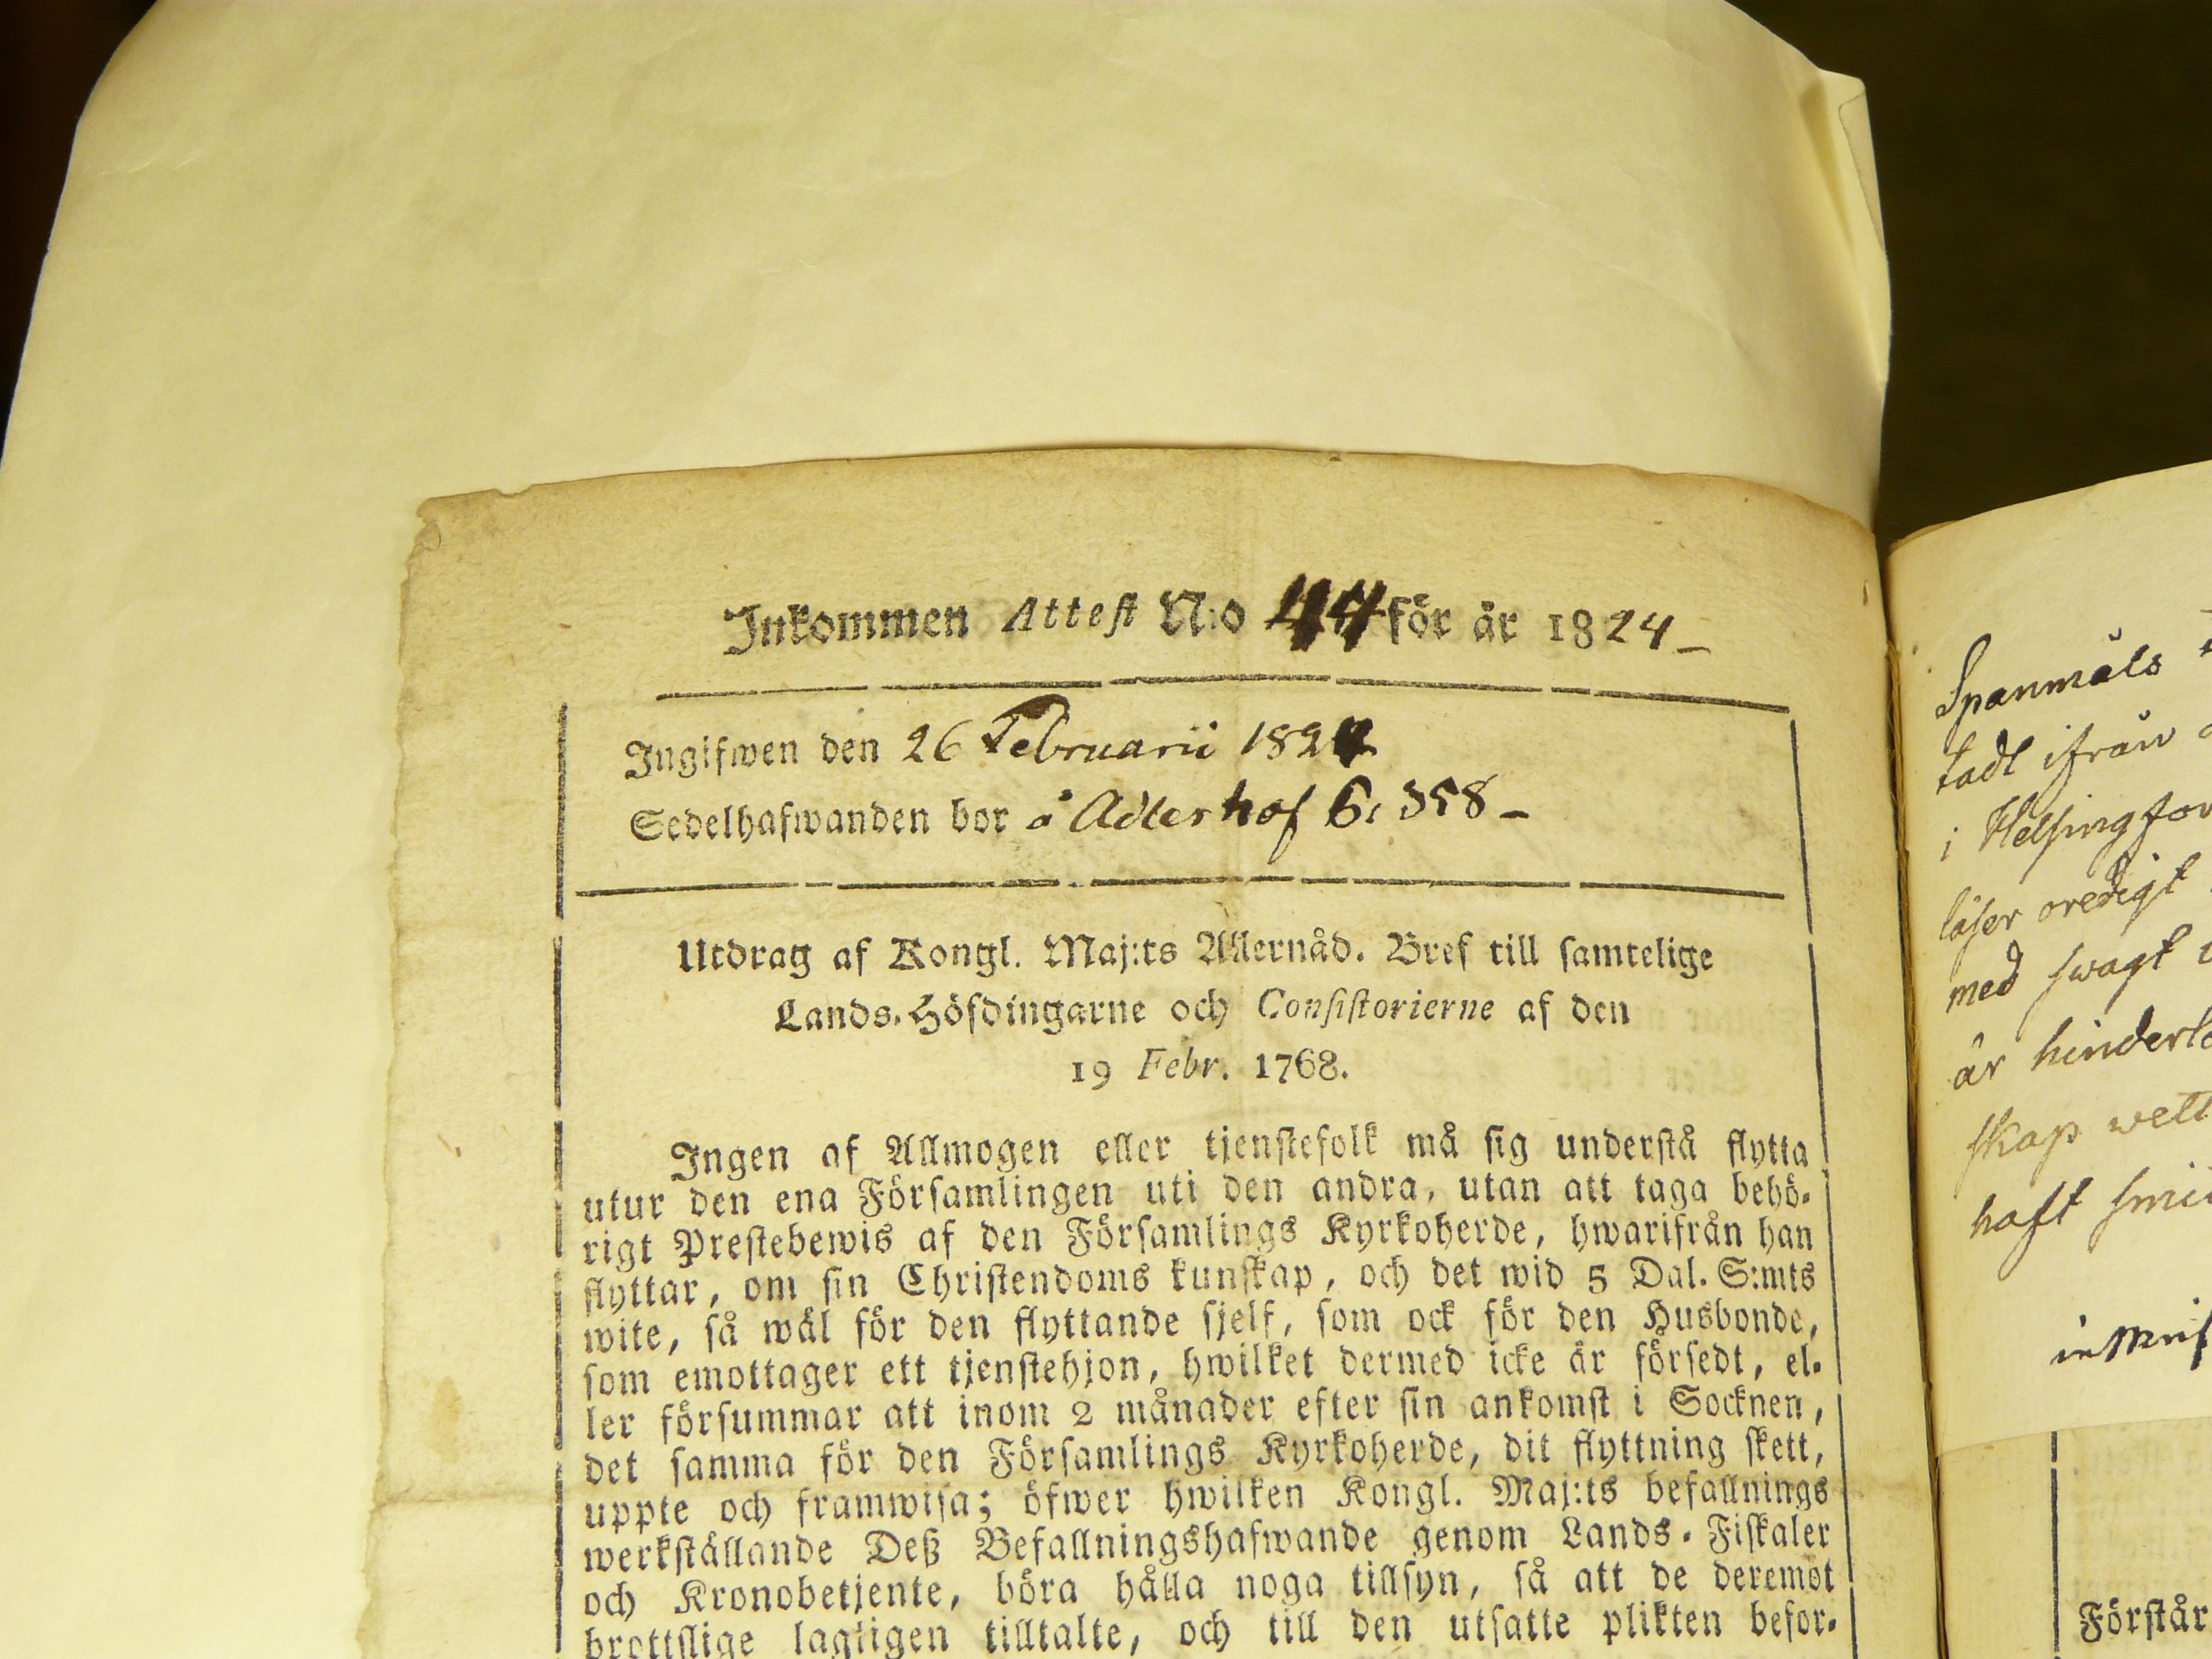 Inkommen Attest N:o 44 för år 1824 –
Ingifwen den 26 Februarii 1824
Sedelhafwanden bor å Adlerhof 6, 358 –
Utdrag af Kongl. Maj:ts Allernåd. Bref till samtelige
Lands-Höfdingarne och Consistorierne af den
19 Febr. 1768.
Ingen af Allmogen eller tjenstefolk må sig understå flytta
utur den ena Församlingen uti den andra, utan att taga behö-
rigt Prestebewis af den Församlings Kyrkoherde, hwarifrån han
flyttar, om sin Christendoms kunskap, och det wid 5 Dal. S:mts
wite, så wäl för den flyttande sjelf, som ock för den Husbonde,
som emottager ett tjenstehjon, hwilket dermed icke är försedt, el-
ler försummar att inom 2 månader efter sin ankomst i Socknen,
det samma för den Församlings Kyrkoherde, dit flyttning skett,
uppte och framwisa; öfwer hwilken Kongl. Maj:ts befallnings
werkställande Deß Befallningshafwande genom Lands-Fiskaler
och Kronobetjente, böra hålla noga tillsyn, så att de deremot
brottslige lagligen tilltalte, och till den utsatte plikten befor-
Spanmåls
tadt ifrån
i Helsingfor
läser oredigt
med swagt
är hinderlö
skap wett
haft
Förstår